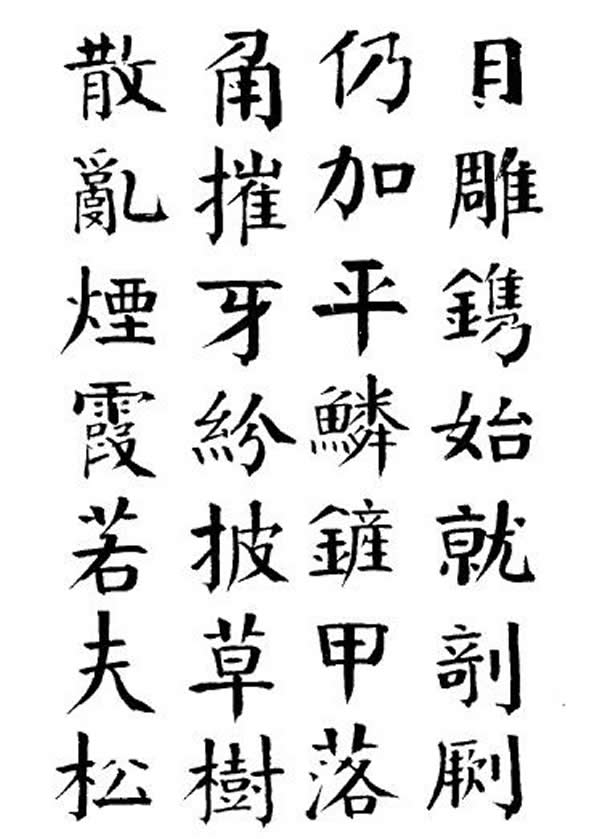 目雕鐫始就剞劂
仍加平鱗鏟甲落
角摧牙紛披草樹
散亂煙霞若夫松